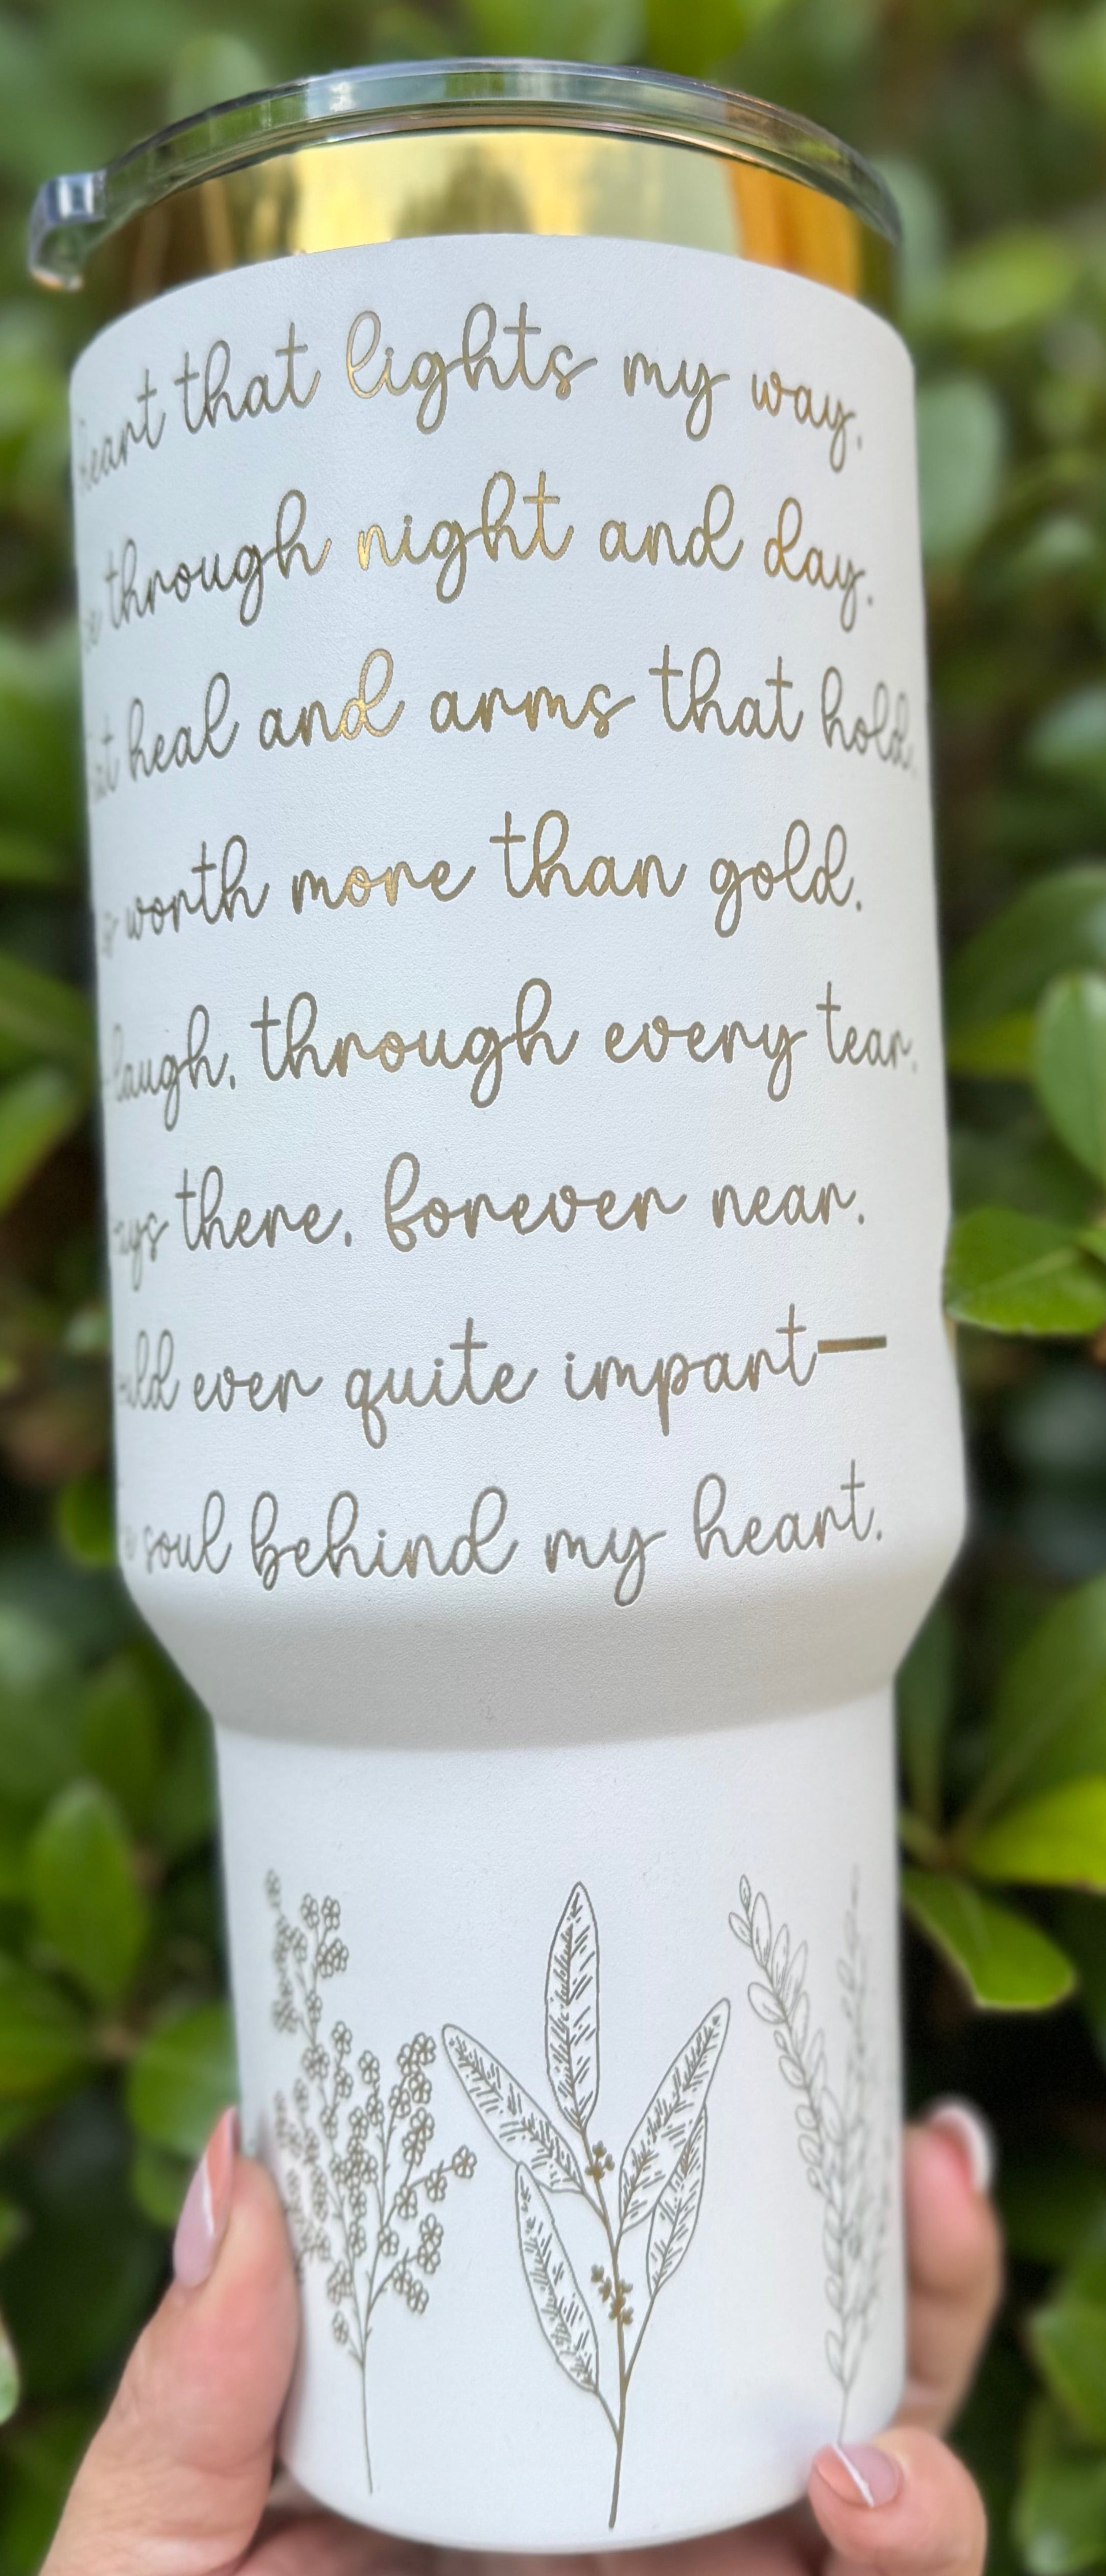 heart that lights my way,
through night and day.
heal and arms that hold,
worth more than gold.
laugh, through every tear,
there, forever near.
ever quite impart—
soul behind my heart.